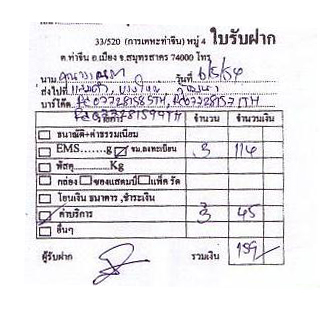 33/520 (การเคหะท่าจีน) หมู่ 4 ใบรับฝาก
ต.ท่าจีน อ.เมือง จ.สมุทรสาคร 74000 โทร
นาม วันที่ 6/5/54
ส่งไปที่
บาร์โค้ด
รายการ จำนวน จำนวนเงิน
ธนาณัติ+ค่าธรรมเนียม
EMS.......g จม.ลงทะเบียน 3 114
พัสดุ..............Kg
กล่อง ซองแสตมป์ แพ็ค รัด
โอนเงิน ธนาคาร ,ชำระเงิน
ค่าบริการ 3 45
อื่นๆ
ผู้รับฝาก รวมเงิน 159